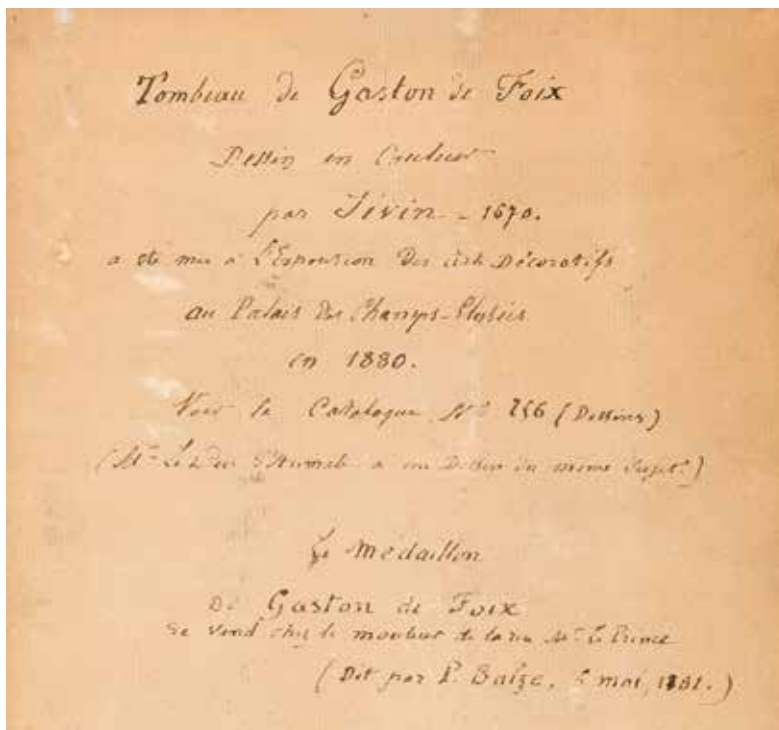 Tombeau de Gaston de Foix
Dessin en Couleur
par Sévin - 1670.
a été mis à l'Exposition des Arts Décoratifs
au Palais des Champs-Elysées
en 1880.
Voir le Catalogue N° 256 (Dessins)
(Mr Le Duc d'Aumale a un Dessin du même Sujet.)
Le médaillon
De Gaston de Foix
se vend chez le mouleur de la rue Mr Le Prince
(Dit par P. Balze, mai, 1881.)